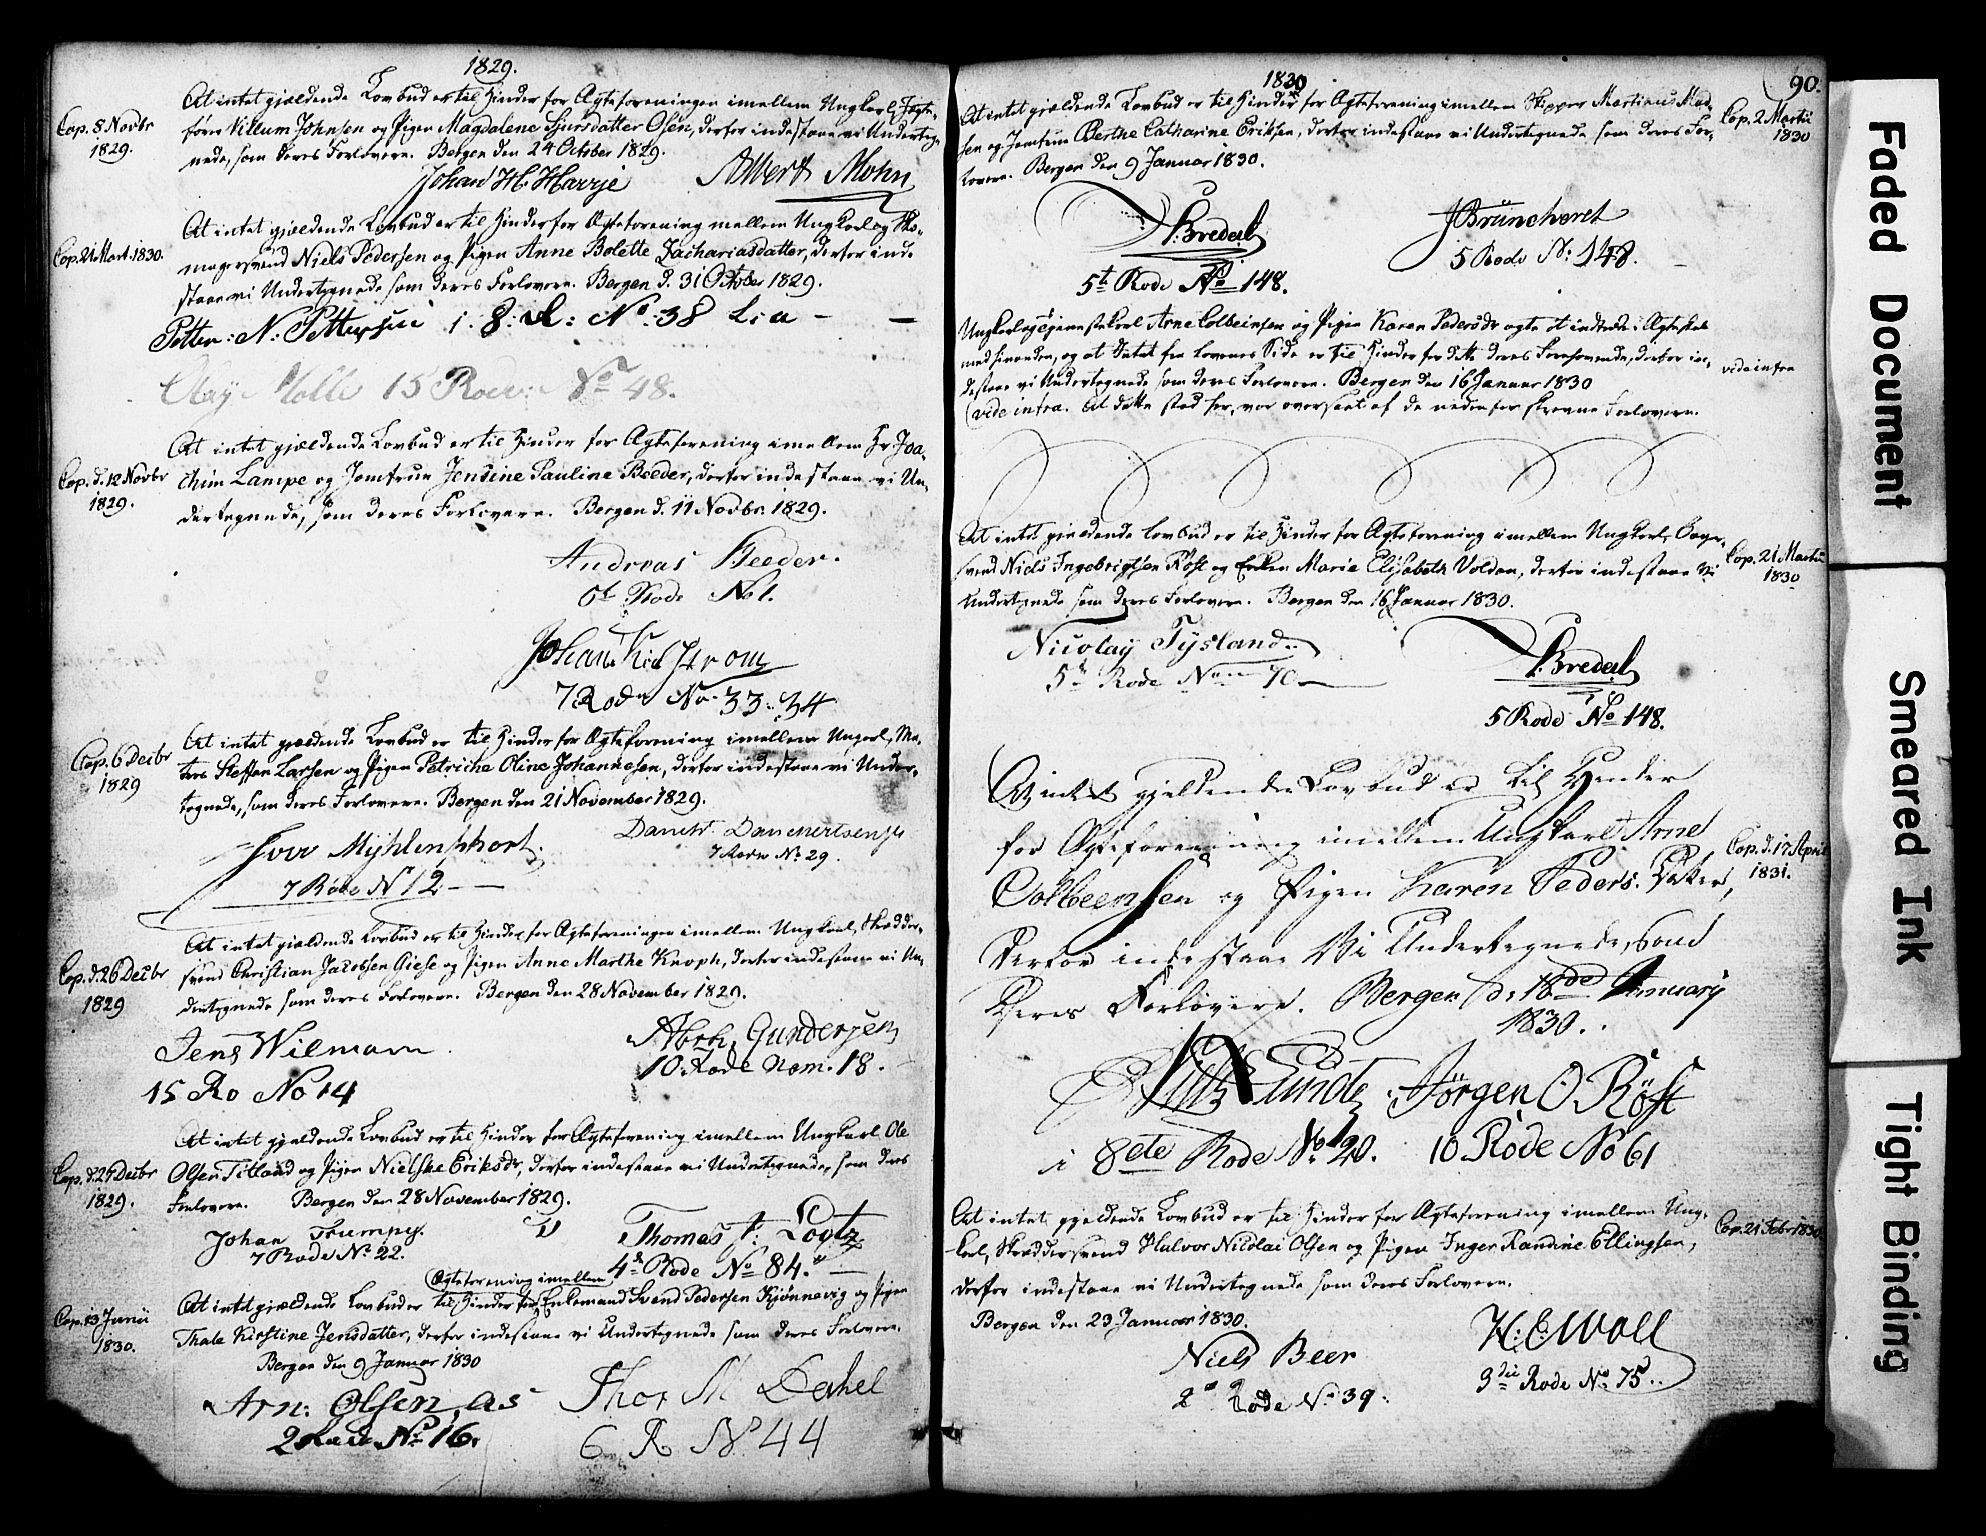 1829.
Cop. 8 Novbr
1829.
At intet gjældende Lovbud er til Hinder for Ægteforeningen imellem Ungkarl, Jægte-
fører Villum Johnsen og Pigen Magdalene Sjursdatter Osen, derfor indestaae vi Underteg-
nede, som deres Forlovere. Bergen den 24 October 1829.
Johan H. Harrje Albert Mohn
Cop. 21 Mart. 1830.
At intet gjældende Lovbud er til Hinder for Ægteforening mellem Ungkarl og Sko-
magersvend Niels Pedersen og Pigen Anne Bolette Zachariasdatter, derfor inde
staae vi Undertegnede som deres Forlovere. Bergen d. 31 October 1829.
Petter: N: Pettersen i. 8: R: No: 38 L: a
15 Rode: No 48.
Cop. d. 12 Novbr
1829.
At intet gjældende Lovbud er til Hinder for Ægteforening imellem Hr. Joa-
chim Lampe og Jomfrue Jensine Pauline Reeder, derfor indestaae vi Un-
dertegnede, som deres Forlovere. Bergen d. 11 Novbr. 1829.
Andreas Reeder.
6t Rode No 1.
Johan
7 Rode No. 33. 34
Cop. 6 Decbr
1829
At intet gjældende Lovbud er til Hinder for Ægteforening imellem Ungkarl, Ma-
tros Steffen Larsen og Pigen Petriche Oline Johannesen, derfor indestaae vi Under-
tegnede, som deres Forlovere. Bergen den 21 November 1829.
Iver Myhlenphort. Danckt. Danckertsen
7 Rode No 12 7 Rode No 29.
Cop. d. 26 Decbr
1829
At intet gjældende Lovbud er til Hinder for Ægteforeningen imellem Ungkarl, Skrædder-
svend Christian Jacobsen Giese og Pigen Anne Marthe Knoph, derfor indestaae vi Un-
dertegnede som deres Forlovere. Bergen den 28 November 1829.
Jens Wilmann Abrh. Gundersen
15 Ro No 14 10 Rode Nom. 18.
Cop. d. 26 Decbr
1829.
At intet gjældende Lovbud er til Hinder for Ægteforening imellem Ungkarl Ole
Olsen Titland og Pigen Nielske Eriksdr, derfor indestaae vi Undertegnede, som deres
Forlovere. Bergen den 28 November 1829.
Johan Trumpy. Thomas F: Lootz
7 Rode No 22. 4de Rode No 84.
Cop. 13 Junii
1830.
Ægteforening imellem
At intet gjældende Lovbud er til Hinder for Enkemand Svend Pedersen Kjønnevig og Pigen
Thale Kirstine Jensdatter, derfor indestaae vi Undertegnede som deres Forlovere.
Bergen den 9 Januar 1830
Arn: Olsen, as Thor M Dahel
2 Rode No 16. 6 R No 44
1830
90.
At intet gjældende Lovbud er til Hinder for Ægteforening imellem Skipper Martinus Mad-
sen og Jomfrue Berthe Catharine Eriksen, derfor indestaae vi Undertegnede som deres For-
lovere. Bergen den 9 Januar 1830.
Cop. 2 Martii
1830
Bredal J Brunchorst
5t Rode No 148. 5 Rode No: 148.
Ungkarl og Tjenestekarl Arne Colbeinsen og Pigen Karen Pedersdr agte at indtræde i Ægteskab
med hinanden, og at Intet fra Lovenes Side er til Hinder for dette deres Forehavende, derfor in-
destaae vi Undertegnede som deres Forlovere. Bergen den 16 Januar 1830
vide infra
(vide infra. At dette sted her, var overseet af de nedenfor skrevne Forlovere.
At intet gjældende Lovbud er til Hinder for Ægteforening imellem Ungkarl, Bager-
svend Niels Ingebrigtsen Røst og Enken Marie Elisabeth Voldan, derfor indestaae vi
Undertegnede som deres Forlovere. Bergen den 16 Januar 1830.
Cop. 21 Martii
1830
Nicolay Tysland. Bredal
5te Rode Nom 70 5 Rode No 148.
At intet gjeldende Lovbud er til Hinder
for Ægteforeening imellem Ungkarl Arne
Colbeensen og Pigen Karen Peders. Datter,
Derfor indestaae Vi Undertegnede, som
Deres Forlovere. Bergen d: 18de January
1830.
Cop. d. 17 April
1831.
Sunde Jørgen O Røst
i 8ete Rode No 120. 10 Rode No 61
At intet gjeldende Lovbud er til Hinder for Ægteforening imellem Ung-
karl, Skræddersvend Halvor Nicolai Olsen og Pigen Inger Randine Ellingsen,
derfor indestaae vi Undertegnede som deres Forlovere.
Bergen den 23 Januar 1830.
Cop. 21 Febr 1830
Niels Beer H: E: Woll
2 Rode No 39. 3die Rode No 75.
Faded Document
Smeared Ink
Tight Binding